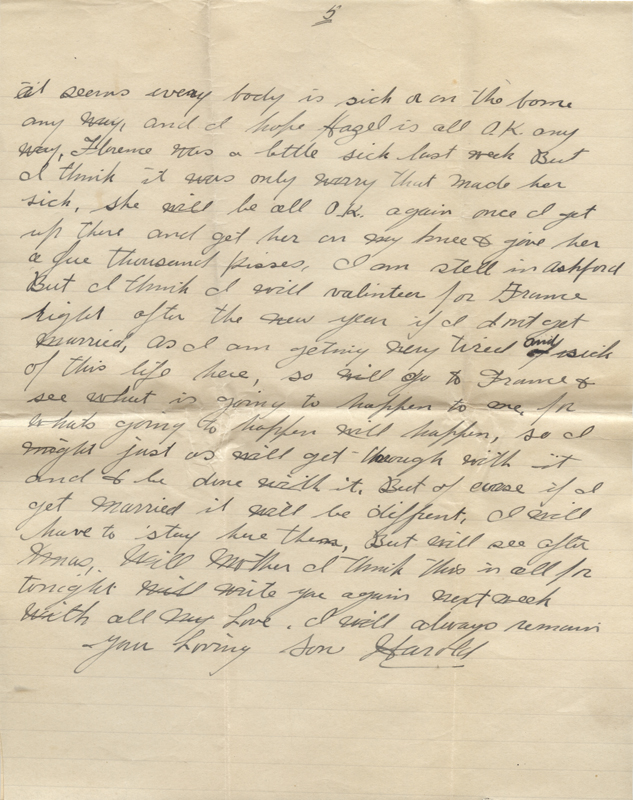 5
it seems every body is sick or on the bome
any way, and I hope Hazel is all O.K. any
way, Florence was a little sick last week But
I think it was only worry that made her
sick, she will be all O.K. again once I get
up there and get her on my knee & give her
a fue thousand kisses, I am still in Ashford
But I think I will valinteer for France
right after the new year if I dont get
married, as I am getting very tired and sick
of this life here, so will go to France &
see what is going to happen to me, for
whats going to happen will happen, so I
might just as well get through with it
and & be done with it. But of corse if I
get married it will be diffrent, I will
have to stay here then, But will see after
Xmas, Well Mother I think this is all for
tonight will write you again next week
With all my Love. I will always remain
Your Loving Son Harold